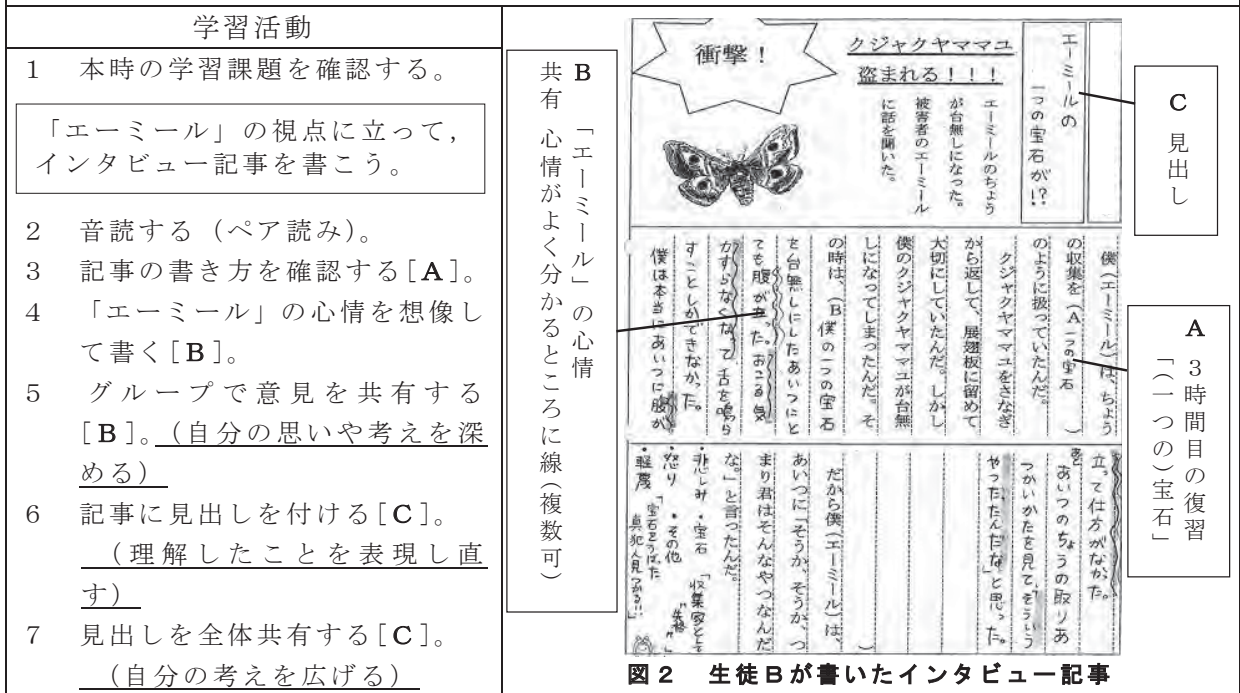 学習活動
1 本時の学習課題を確認する。
「エーミール」の視点に立って，
インタビュー記事を書こう。
2 音読する（ペア読み）。
3 記事の書き方を確認する[A]。
4 「エーミール」の心情を想像し
て書く[B]。
5 グループで意見を共有する
[B]。（自分の思いや考えを深
める）
6 記事に見出しを付ける[C]。
（理解したことを表現し直
す）
7 見出しを全体共有する[C]。
（自分の考えを広げる）
B 「エーミール」の心情
共有 心情がよく分かるところに線（複数可）
C 見出し
A 3時間目の復習
「（一つの）宝石」
エーミールの
一つの宝石が!?
クジャクヤママユ
盗まれる！！！
エーミールのちょう
が台無しになった。
被害者のエーミール
に話を聞いた。
衝撃！
僕（エーミール）は、ちょう
の収集を（A 一つの宝石 ）
のように扱っていたんだ。
クジャクヤママユをさなぎ
から返して、展翅板に留めて
大切にしていたんだ。しかし
僕のクジャクヤママユが台無
しになってしまったんだ。そ
の時は、（B 僕の一つの宝石
を台無しにしたあいつにと
ても腹が立った。おこる気
力すらなくなって舌を鳴ら
すことしかできなかった。
僕は本当にあいつに腹が
立って仕方がなかった。
あいつのちょうの取りあ
つかいかたを見て、「そういう
やつだったんだな」と思った。
）
だから僕（エーミール）は、
あいつに「そうか、そうか、つ
まり君はそんなやつなんだ
な。」と言ったんだ。
・悲しみ ・宝石 「収集家として
・怒り ・その他
・軽蔑 「宝石をうばった
真犯人見つかる!!」
図2 生徒Bが書いたインタビュー記事